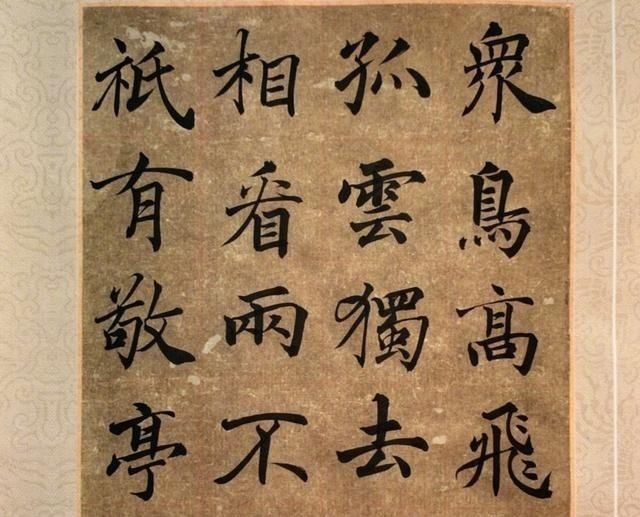 衆鳥髙飛
孤雲獨去
相看兩不
祇有敬亭